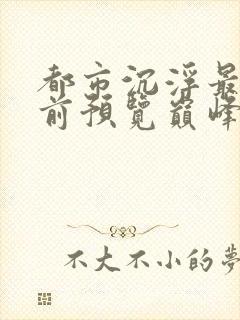 都市沉浮最
前預覽巔峰
不大不小的夢